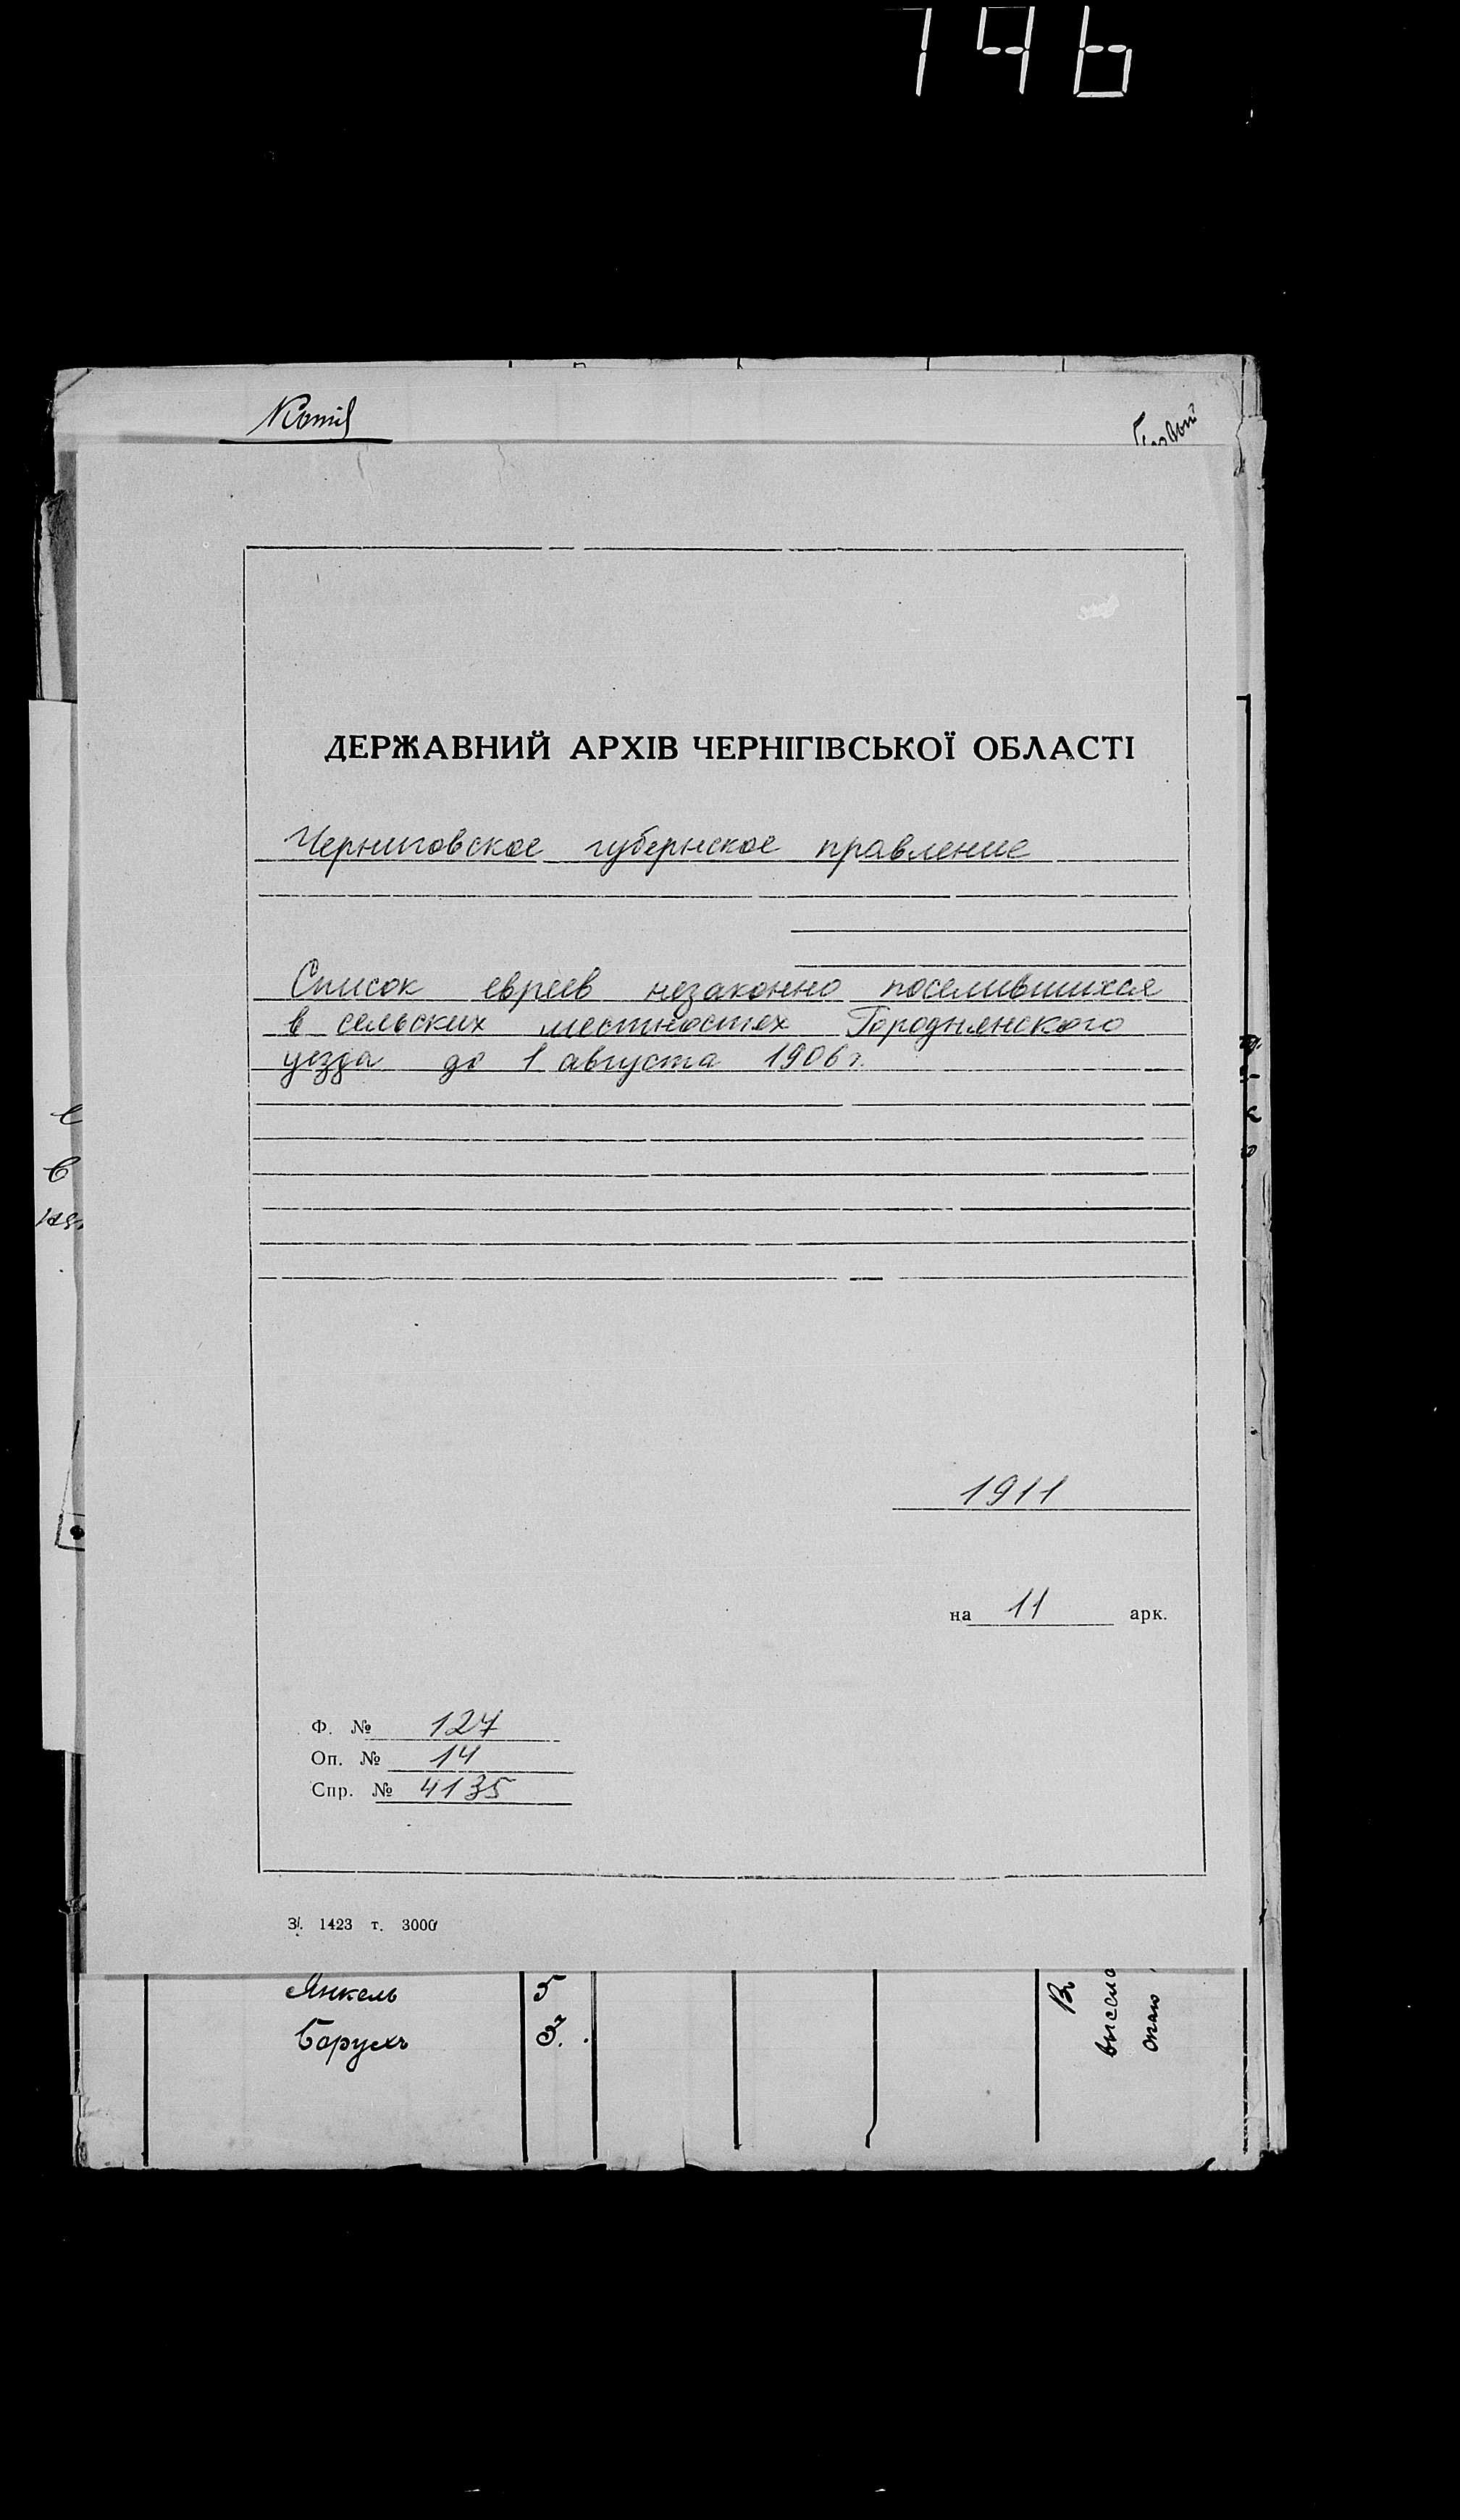 746
ДЕРЖАВНИЙ АРХІВ ЧЕРНІГІВСЬКОЇ ОБЛАСТІ
Черниговское губернское правление
Список евреев незаконно поселившихся
в сельских местностях Городнянского
уезда до 1 августа 1906 г.
1911
на 11 арк.
Ф. № 127
Оп. № 14
Спр. № 4135
З. 1423 т. 3000
Янкель 5
Борухъ 3.